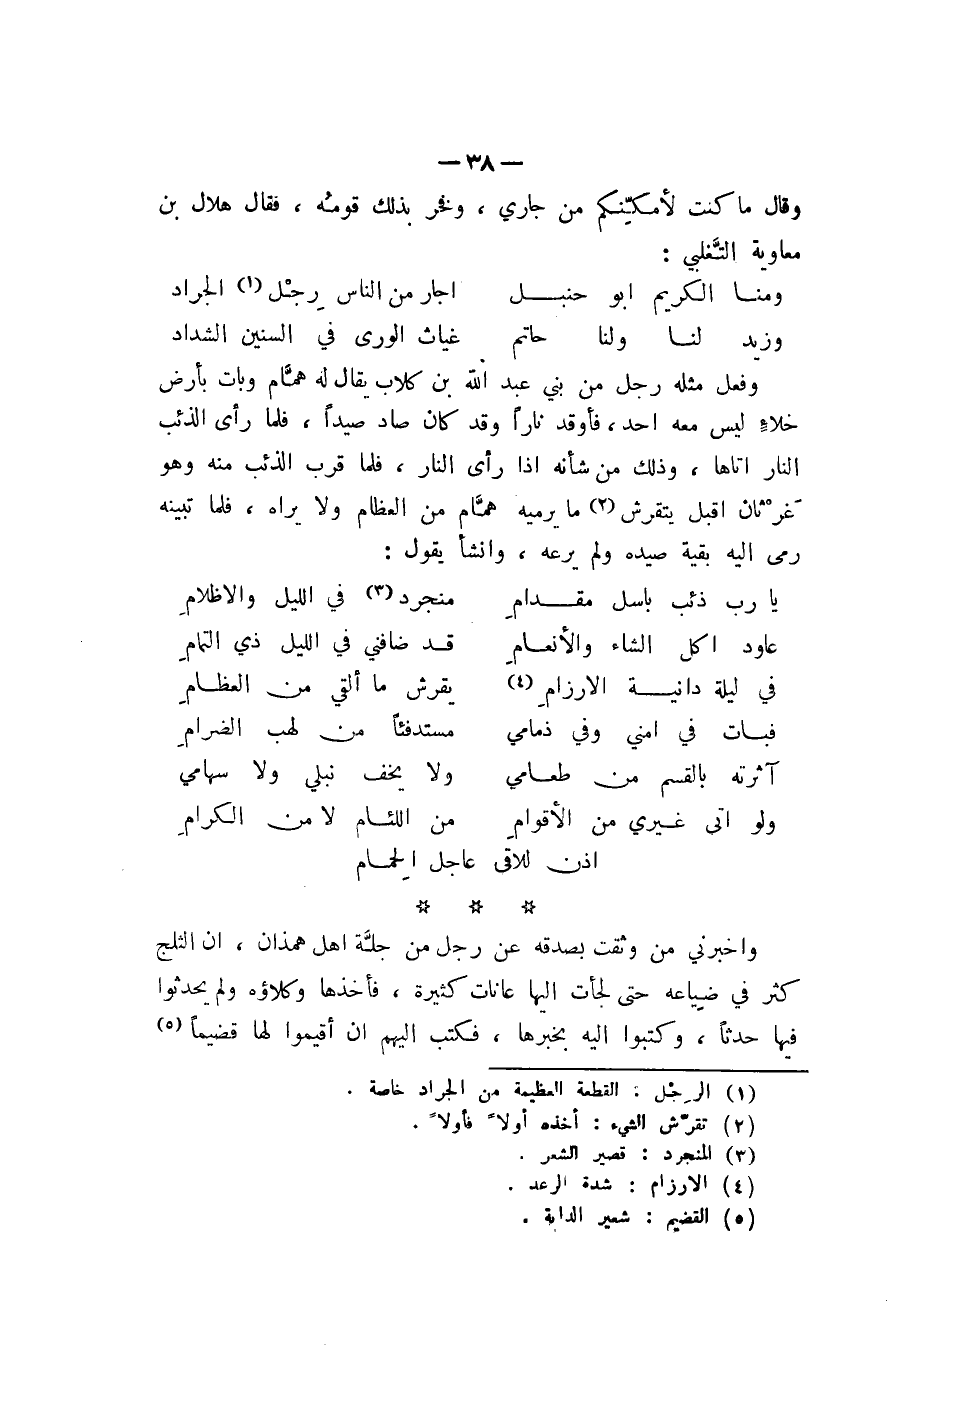 — ٣٨ —
وقال ما كنت لأمكّنكم من جاري ، وفخر بذلك قومُه ، فقال هلال بن
معاوية التَّغلبي :
ومنا الكريم ابو حنبل اجار من الناس رِجْل (١) الجراد
وزيد لنا ولنا حاتم غياث الورى في السنين الشداد
وفعل مثله رجل من بني عبد الله بن كلاب يقال له همَّام وبات بأرض
خلاءٍ ليس معه احد ، فأوقد ناراً وقد كان صاد صيداً ، فلما رأى الذئب
النار اتاها ، وذلك من شأنه اذا رأى النار ، فلما قرب الذئب منه وهو
غَرْثان اقبل يتقرش (٢) ما يرميه همَّام من العظام ولا يراه ، فلما تبينه
رمى اليه بقية صيده ولم يرعه ، وانشأ يقول :
يا رب ذئب باسل مقدامِ منجرد (٣) في الليل والاظلامِ
عاود اكل الشاء والأنعامِ قد ضافني في الليل ذي التمامِ
في ليلة دانية الارزامِ (٤) يقرش ما ألقي من العظامِ
فبات في امني وفي ذمامي مستدفئاً من لهب الضرامِ
آثرته بالقسم من طعامي ولا يخف نبلي ولا سهامي
ولو اتى غيري من الأقوامِ من اللئام لا من الكرامِ
اذن للاقى عاجل الحِمام
☆ ☆ ☆
واخبرني من وثقت بصدقه عن رجل من جلَّة اهل همذان ، ان الثلج
كثر في ضياعه حتى لجأت اليها عانات كثيرة ، فأخذها وكلاؤه ولم يحدثوا
فيها حدثاً ، وكتبوا اليه بخبرها ، فكتب اليهم ان أقيموا لها قضيماً (٥)
(١) الرِجْل : القطعة العظيمة من الجراد خاصة .
(٢) تقرّش الشيء : أخذه أولاً فأولاً .
(٣) المنجرد : قصير الشعر .
(٤) الارزام : شدة الرعد .
(٥) القضيم : شعير الدابة .